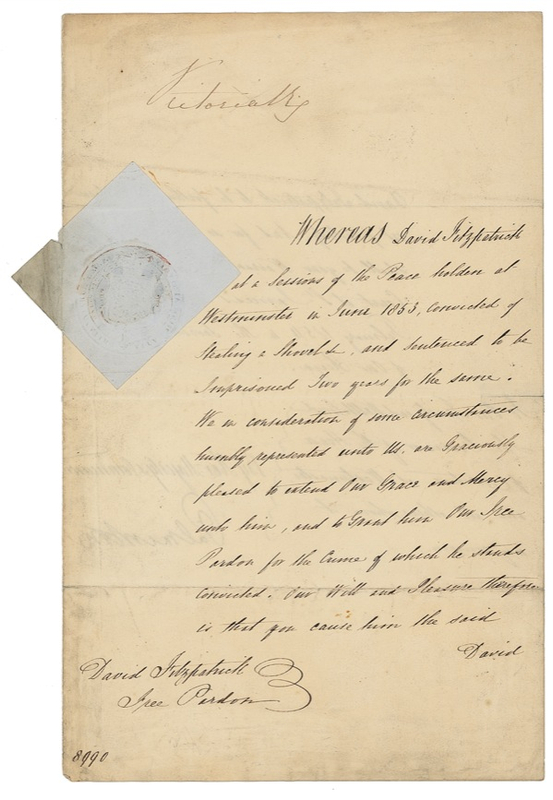 Victoria R
Whereas David Fitzpatrick
at a Sessions of the Peace holden at
Westminster in June 1853, convicted of
Stealing 2 Shovels, and sentenced to be
Imprisoned Two years for the same.
We in consideration of some circumstances
humbly represented unto Us, are Graciously
pleased to extend Our Grace and Mercy
unto him, and to Grant him Our Free
Pardon for the Crime of which he stands
Convicted. Our Will and Pleasure therefore
is that you cause him the said
David
David Fitzpatrick
Free Pardon
8990